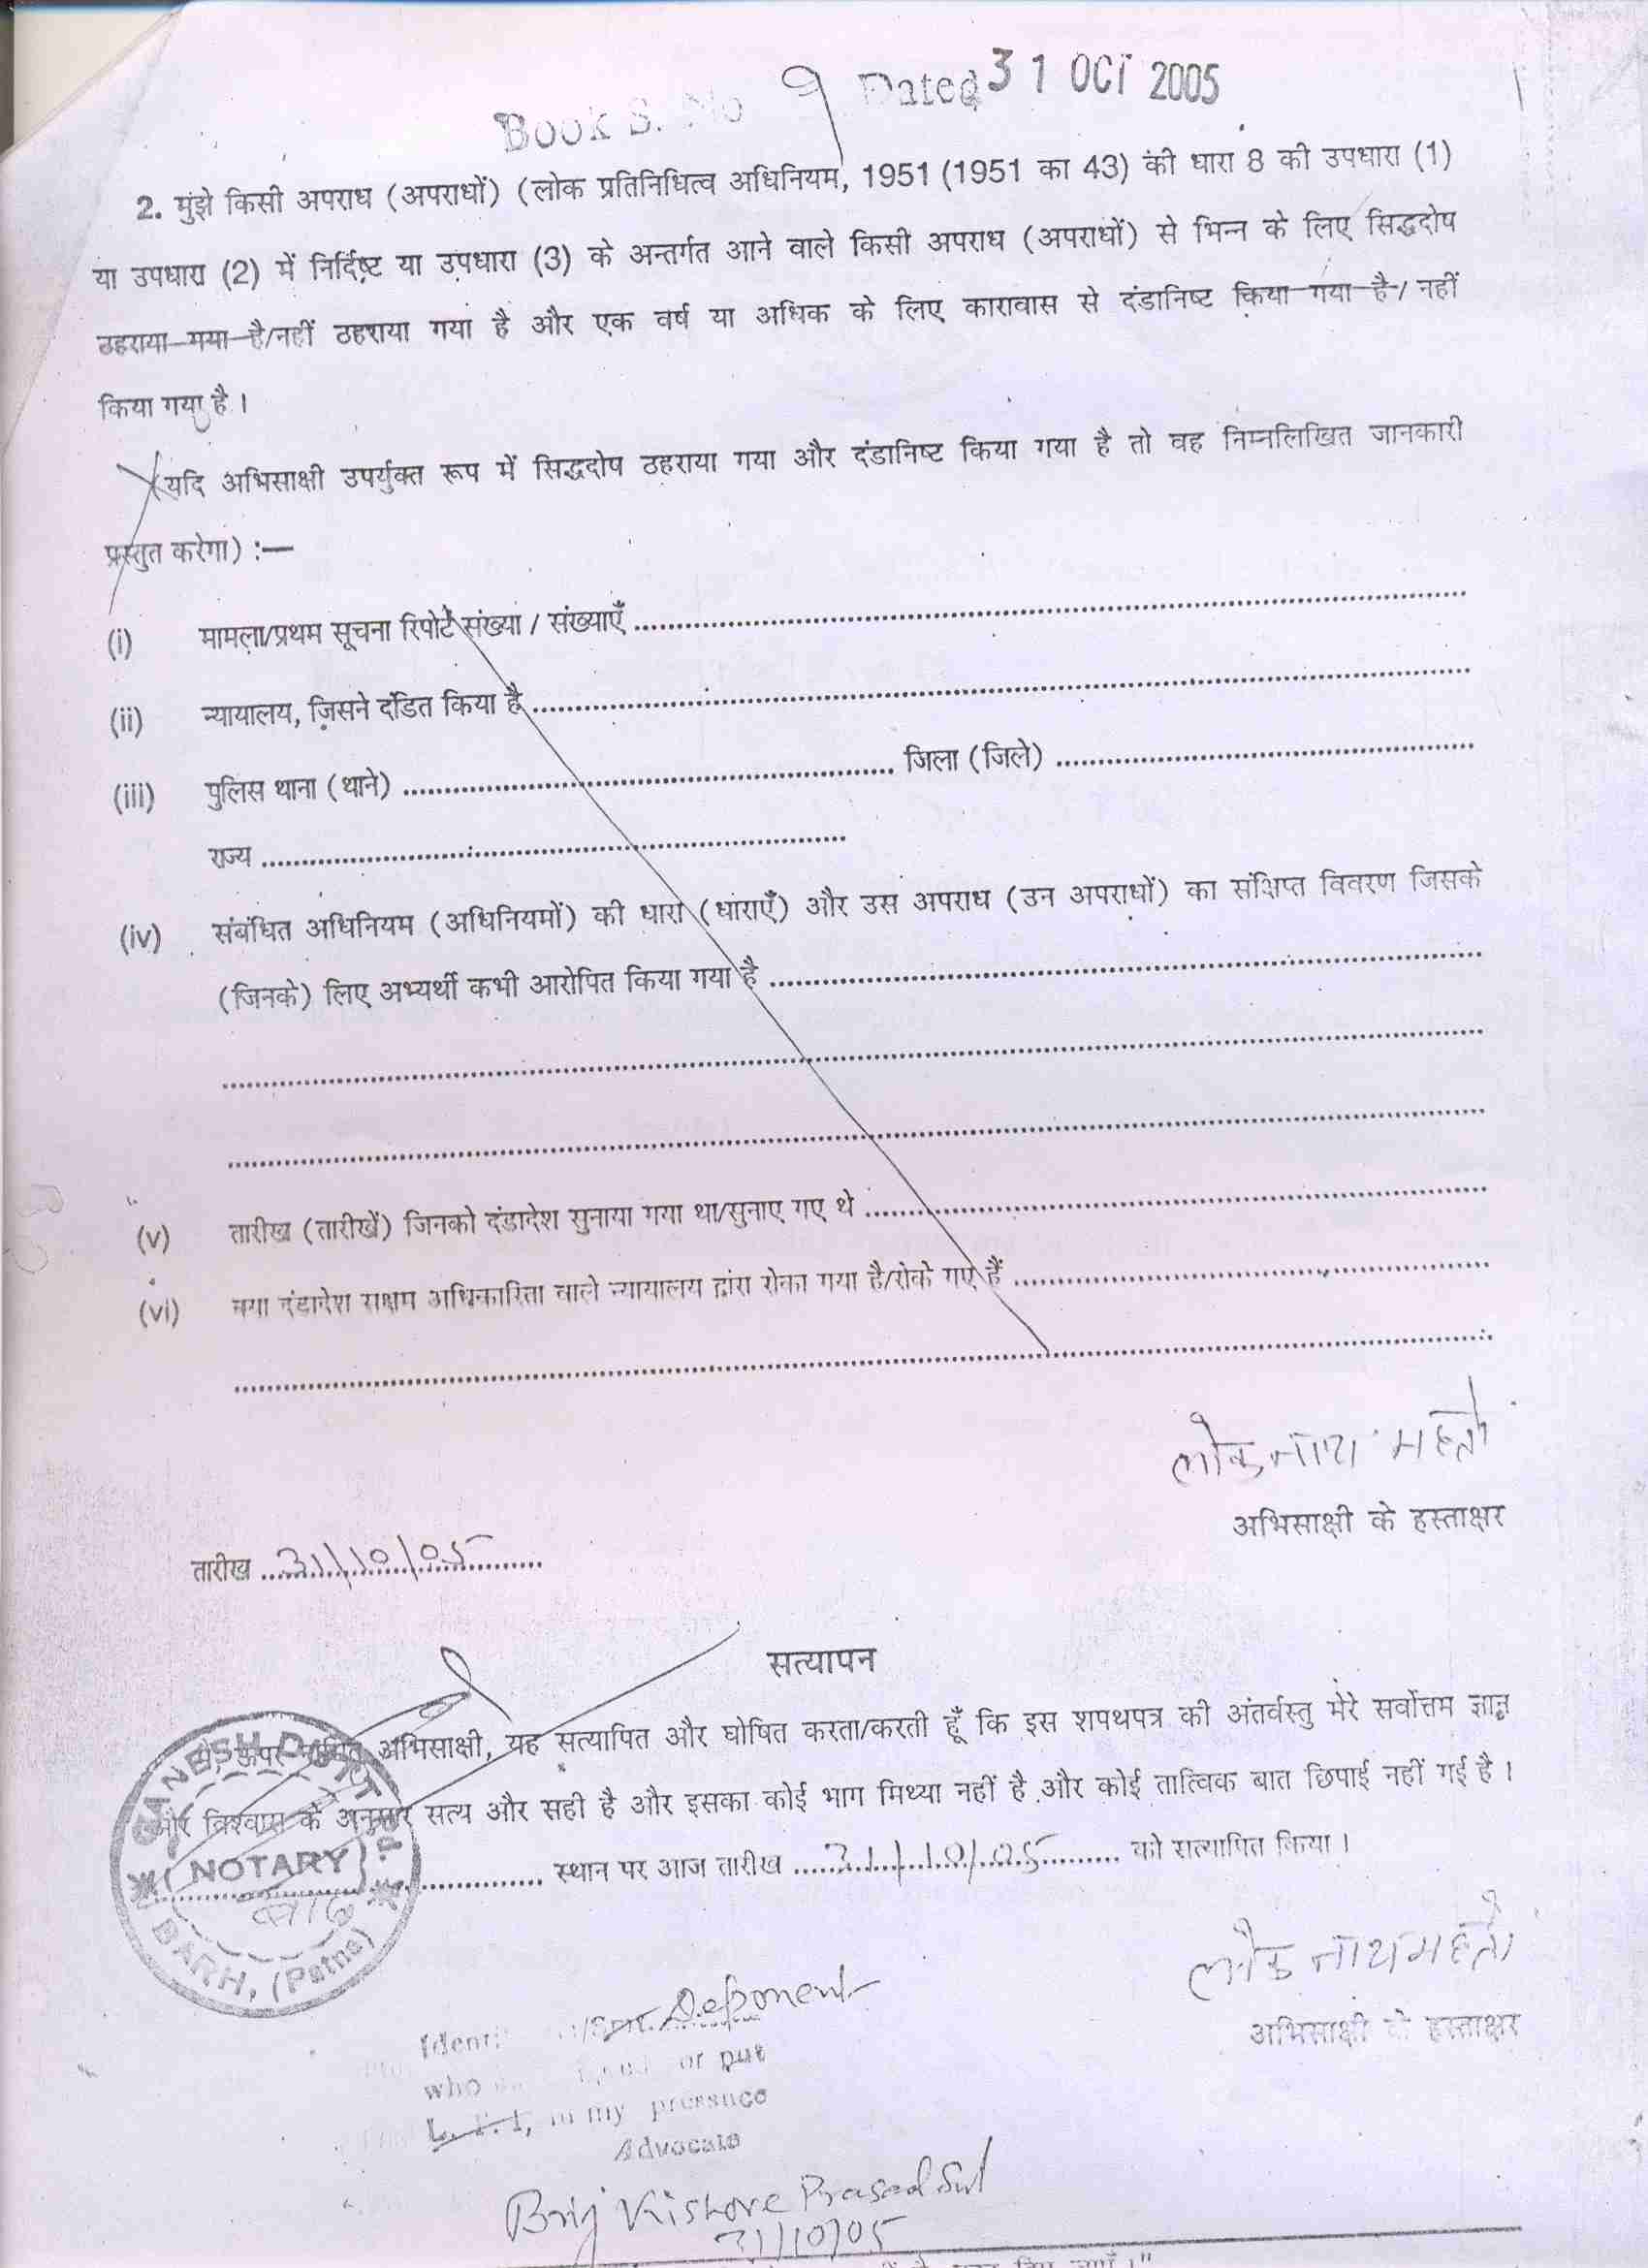 Book S. No 9 Dated 31 OCT 2005
2. मुझे किसी अपराध (अपराधों) (लोक प्रतिनिधित्व अधिनियम, 1951 (1951 का 43) की धारा 8 की उपधारा (1)
या उपधारा (2) में निर्दिष्ट या उपधारा (3) के अन्तर्गत आने वाले किसी अपराध (अपराधों) से भिन्न के लिए सिद्धदोष
ठहराया गया है/नहीं ठहराया गया है और एक वर्ष या अधिक के लिए कारावास से दंडानिष्ट किया गया है/ नहीं
किया गया है ।
(यदि अभिसाक्षी उपर्युक्त रूप में सिद्धदोष ठहराया गया और दंडानिष्ट किया गया है तो वह निम्नलिखित जानकारी
प्रस्तुत करेगा) :—
(i) मामला/प्रथम सूचना रिपोर्ट संख्या / संख्याएँ ..........
(ii) न्यायालय, जिसने दंडित किया है ..........
(iii) पुलिस थाना (थाने) .......... जिला (जिले) ..........
राज्य ..........
(iv) संबंधित अधिनियम (अधिनियमों) की धारा (धाराएँ) और उस अपराध (उन अपराधों) का संक्षिप्त विवरण जिसके
(जिनके) लिए अभ्यर्थी कभी आरोपित किया गया है ..........
(v) तारीख (तारीखें) जिनको दंडादेश सुनाया गया था/सुनाए गए थे ..........
(vi) क्या दंडादेश सक्षम अधिकारिता वाले न्यायालय द्वारा रोका गया है/रोके गए हैं ..........
लोक नाथ महतो
अभिसाक्षी के हस्ताक्षर
तारीख 31/10/05
सत्यापन
मैं, ऊपर नामित अभिसाक्षी, यह सत्यापित और घोषित करता/करती हूँ कि इस शपथपत्र की अंतर्वस्तु मेरे सर्वोत्तम ज्ञान
और विश्वास के अनुसार सत्य और सही है और इसका कोई भाग मिथ्या नहीं है और कोई तात्विक बात छिपाई नहीं गई है ।
बाढ़ .......... स्थान पर आज तारीख 31/10/05 को सत्यापित किया ।
GANESH DUTT
NOTARY
BARH, (Patna)
लोक नाथ महतो
अभिसाक्षी के हस्ताक्षर
Deponent
who or put
L. T. I, in my presnce
Advocate
Brij Kishore Prasad
31/10/05